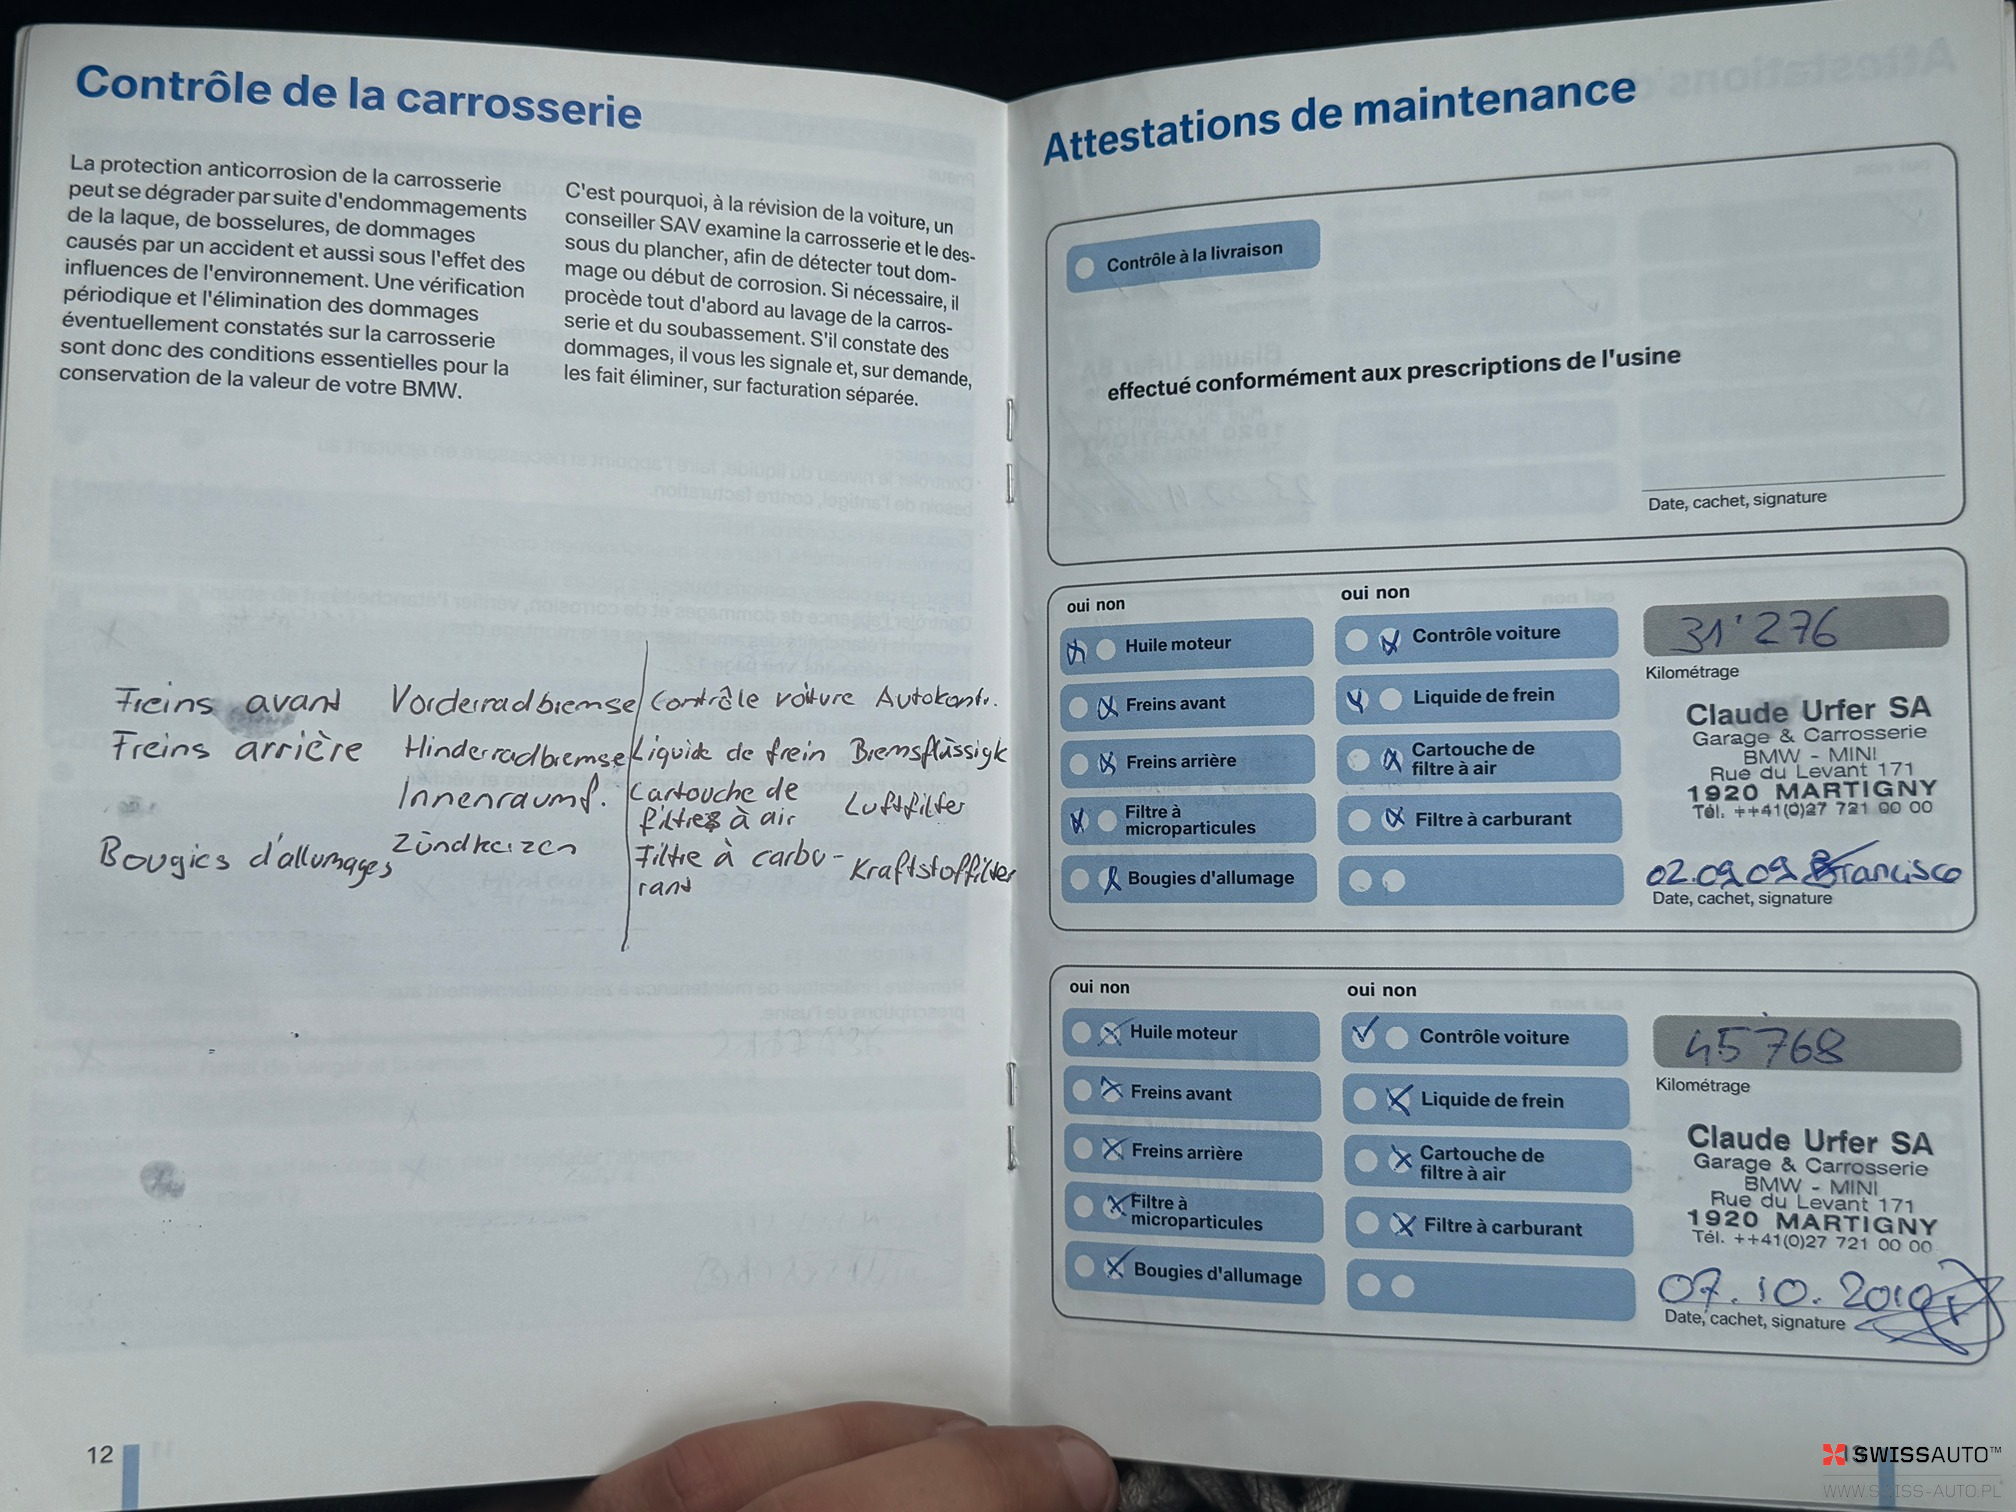 Contrôle de la carrosserie
La protection anticorrosion de la carrosserie
peut se dégrader par suite d'endommagements
de la laque, de bosselures, de dommages
causés par un accident et aussi sous l'effet des
influences de l'environnement. Une vérification
périodique et l'élimination des dommages
éventuellement constatés sur la carrosserie
sont donc des conditions essentielles pour la
conservation de la valeur de votre BMW.
C'est pourquoi, à la révision de la voiture, un
conseiller SAV examine la carrosserie et le des-
sous du plancher, afin de détecter tout dom-
mage ou début de corrosion. Si nécessaire, il
procède tout d'abord au lavage de la carros-
serie et du soubassement. S'il constate des
dommages, il vous les signale et, sur demande,
les fait éliminer, sur facturation séparée.
Freins avant Vorderradbremse
Freins arrière Hinderradbremse
Innenraumf.
Bougies d'allumages Zündkerzen
Contrôle voiture Autokontr.
Liquide de frein Bremsflüssigk
Cartouche de
filtres à air Luftfilter
Filtre à carbu- Kraftstoffilter
rant
12
Attestations de maintenance
Contrôle à la livraison
effectué conformément aux prescriptions de l'usine
Date, cachet, signature
oui non
Huile moteur
Freins avant
Freins arrière
Filtre à
microparticules
Bougies d'allumage
oui non
Contrôle voiture
Liquide de frein
Cartouche de
filtre à air
Filtre à carburant
31'276
Kilométrage
Claude Urfer SA
Garage & Carrosserie
BMW - MINI
Rue du Levant 171
1920 MARTIGNY
Tél. ++41(0)27 721 00 00
02.09.09 Francisco
Date, cachet, signature
oui non
Huile moteur
Freins avant
Freins arrière
Filtre à
microparticules
Bougies d'allumage
oui non
Contrôle voiture
Liquide de frein
Cartouche de
filtre à air
Filtre à carburant
45'768
Kilométrage
Claude Urfer SA
Garage & Carrosserie
BMW - MINI
Rue du Levant 171
1920 MARTIGNY
Tél. ++41(0)27 721 00 00
07.10.2010
Date, cachet, signature
SWISSAUTO™
WWW.SWISS-AUTO.PL